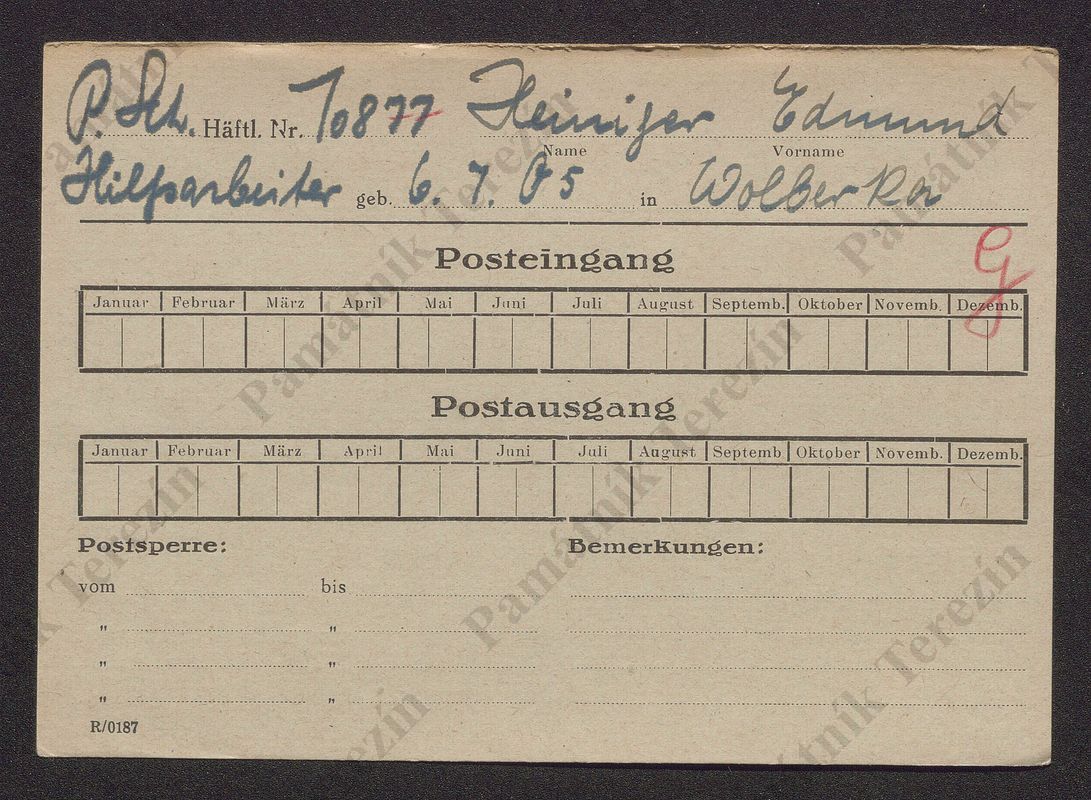 P. Sch. Häftl. Nr. 10877 Heiniger Edmund
Name Vorname
Hilfsarbeiter geb. 6. 7. 05 in Wolberka
G
Posteingang
Januar Februar März April Mai Juni Juli August Septemb. Oktober Novemb. Dezemb.
Postausgang
Januar Februar März April Mai Juni Juli August Septemb Oktober Novemb. Dezemb.
Postsperre: Bemerkungen:
vom bis
" "
" "
" "
R/0187
Památník Terezín